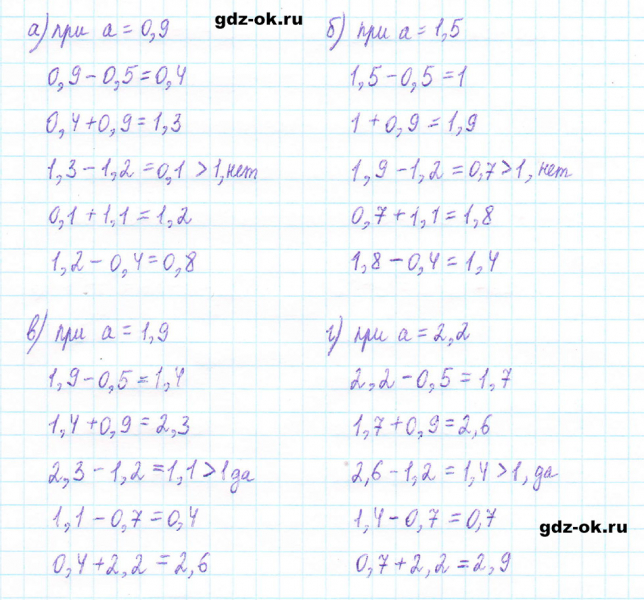 gdz-ok.ru
а) при a = 0,9
0,9 - 0,5 = 0,4
0,4 + 0,9 = 1,3
1,3 - 1,2 = 0,1 > 1, нет
0,1 + 1,1 = 1,2
1,2 - 0,4 = 0,8
б) при a = 1,5
1,5 - 0,5 = 1
1 + 0,9 = 1,9
1,9 - 1,2 = 0,7 > 1, нет
0,7 + 1,1 = 1,8
1,8 - 0,4 = 1,4
в) при a = 1,9
1,9 - 0,5 = 1,4
1,4 + 0,9 = 2,3
2,3 - 1,2 = 1,1 > 1 да
1,1 - 0,7 = 0,4
0,4 + 2,2 = 2,6
г) при a = 2,2
2,2 - 0,5 = 1,7
1,7 + 0,9 = 2,6
2,6 - 1,2 = 1,4 > 1, да
1,4 - 0,7 = 0,7
0,7 + 2,2 = 2,9
gdz-ok.ru